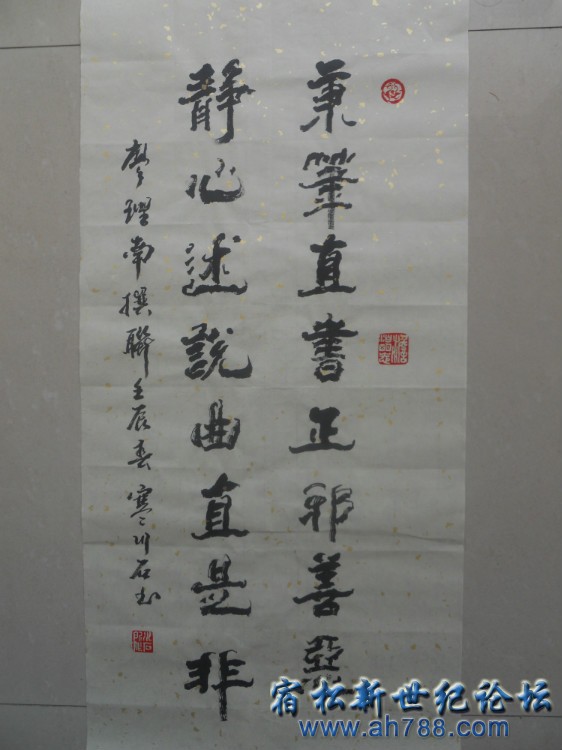 秉筆直書正邪善惡
靜心述説曲直是非
廖理南撰聯壬辰春寒川石書
宿松新世纪论坛
www.ah788.com